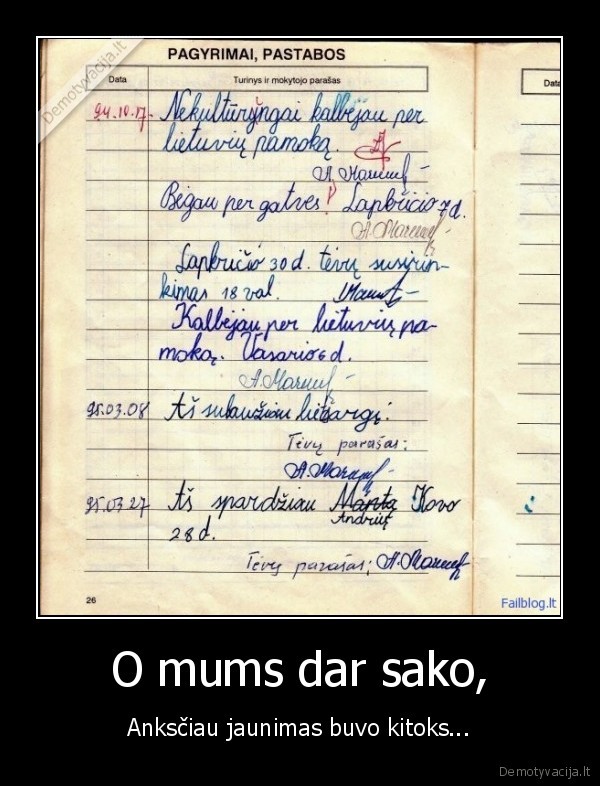 Demotyvacija.lt
PAGYRIMAI, PASTABOS
Data
Turinys ir mokytojo parašas
Data
94.10.17. Nekultūryngai kalbėjau per
lietuvių pamoką.
Bėgau per gatves! Lapkričio 7 d.
Lapkričio 30 d. tėvų susirin-
kimas 18 val.
Kalbėjau per lietuvių pa-
moką. Vasario 6 d.
95.03.08 Aš sulaužiau liežargį.
Tėvų parašas:
95.03.27 Aš spardžiau Mantą Kovo
Andrių
28 d.
Tėvų parašas:
26
Failblog.lt
O mums dar sako,
Anksčiau jaunimas buvo kitoks...
Demotyvacija.lt